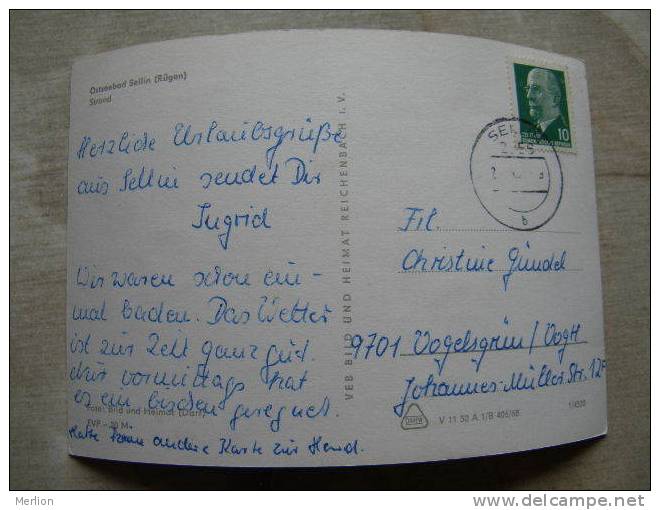 Ostseebad Sellin (Rügen)
Strand
Herzliche Urlaubsgrüße
aus Sellin sendet Dir
Ingrid
Wir waren schon ein-
mal baden. Das Wetter
ist zur Zeit ganz gut.
Nur vormittags hat
es ein bischen geregnet.
Foto: Bild und Heimat (Darr)
EVP - 20 M
Hatte keine andere Karte zur Hand.
VEB BILD UND HEIMAT REICHENBACH I. V.
10
b
Frl.
Christine Gündel
9701 Vogelsgrün/Vogtl
Johannes-Müller-Str. 12
V 11 50 A 1/B 405/68
delcampe.net
Merlion